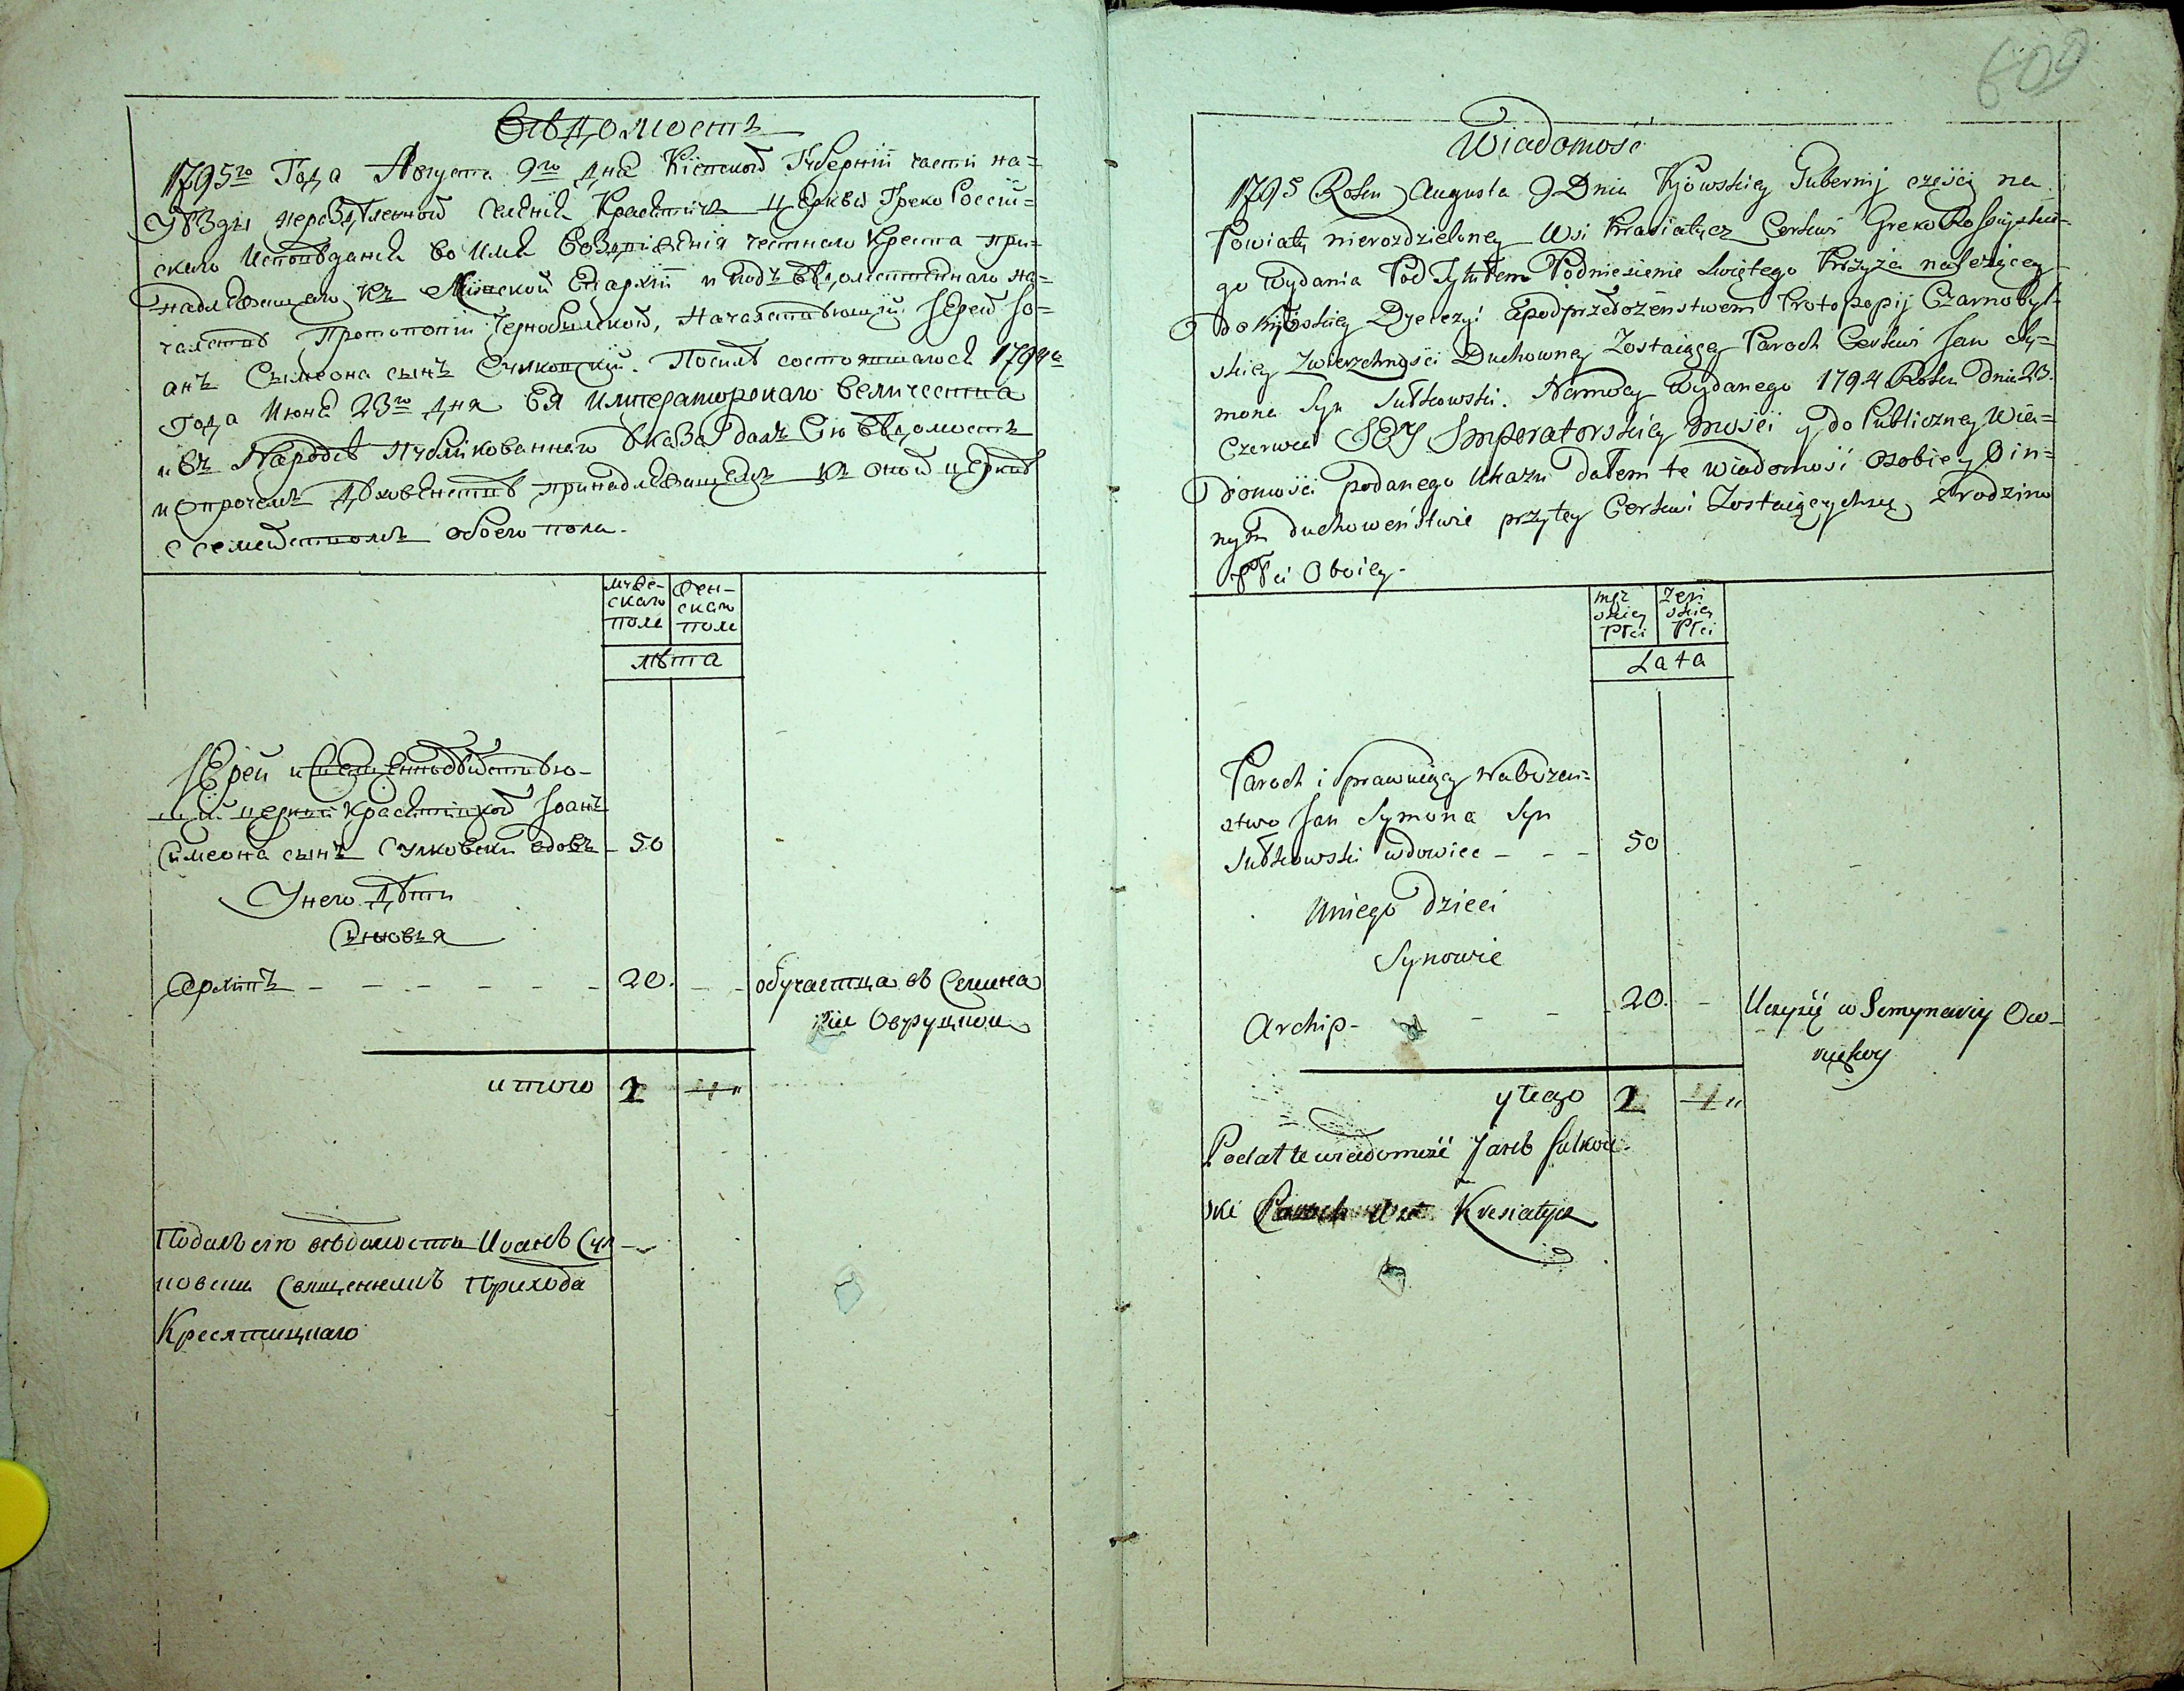 Вѣдомость
1795го Года Августа 9го дня Кіевской Губерніи части на
Уѣзды нераздѣленной селенія Красятичъ церкви Греко Россій=
скаго Исповѣданія во имя воздвиженія честнаго Креста при=
надлежащаго къ Минской Епархіи и подъ вѣдомственнаго на=
чалства Протопопіи Чернобылской, Началствующій Іерей Іо=
анъ Сымеона сынъ Сулковскій. Посилѣ состоявшагося 1794го
года Июня 23го дня Ея Императорскаго Величества
и въ Народѣ публикованнаго Указа далъ Сію вѣдомость
и опрочемъ духовенствѣ принадлежащемъ къ оной церквѣ
с семействомъ обоего пола.
мужескаго пола
женскаго пола
лѣта
Іерей и Священнодѣйствую-
щій церкви Красятицкой Іоанъ
Симеона сынъ Сулковски вдовъ - 50
Унего дѣти
Сыновья
Архипъ - - - - - - 20. - - обучаетца въ Семина
ріи Овруцкои
итого 2 "
Подалъ сію вѣдомости Иоанъ Сул
ковски Священникъ Прихода
Кресятицкаго
609
Wiadomość
1795 Roku Augusta 9 Dnia Kijowskiey Gubernij części na
Powiaty nierozdzieloney Wsi Krasiatycz Cerkwi GrekoRossyiskie=
go Wydania Pod Tytułem Podniesienie Swiętego Krzyża należącey
do Kijoskiey Dyecezyi apodprzełożenstwem Protopopij Czarnobyl=
skiey Zwierzchności Duchowney Zostaiącey Paroch Cerkwi Jan Sy=
mona Syn Sułkowski. Namocy Wydanego 1794 Roku Dnia 23.
Czerwca JEY Imperatorskiey Mości y do Publiczney Wia=
domości podanego Ukazu dałem te Wiadomość Osobie y O in=
nym duchowieństwie przytey Cerkwi Zostaiącychsię z rodzino
Płci Oboiey.
męz
skiey
Płci
Zeń
skiey
Płci
Lata
Paroch i Sprawuiący Nabozeń=
stwo Jan Symona Syn
Sułkowski wdowiec - - - 50
Uniego Dzieci
Synowie
Archip - - - 20. - Uczysię w Semynariy Ow-
ruckiey
ytego 2 "
Podał te wiadomość Janb Sulkow-
ski Paroch Wsi Kresiatycz